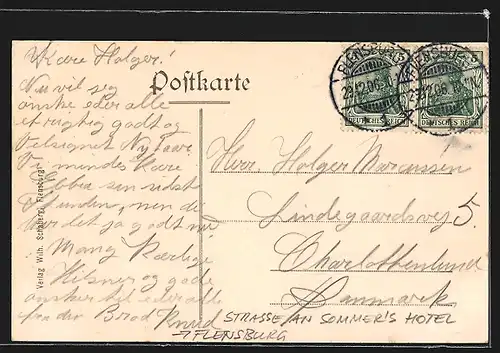 Kære Holger!
Nu vil jeg
ønske eder alle
et rigtig godt og
velsignet Nytaar.
Vi mindes kære
Ebba sen sidst
Stunder, men de
har det jo godt nu
Mang Kærlige
Hilsner og gode
ønsker til eder alle
fra din Broder Knud
Postkarte
Verlag Wilh. Schaberg, Flensburg
FLENSBURG
28.12.06.
DEUTSCHES REICH
FLENSBURG
28.12.06.
DEUTSCHES REICH
Herr Holger Marcussen
Lindegaardsvej 5.
Charlottenlund
Danmark
STRASSE AN SOMMER'S HOTEL
→ FLENSBURG